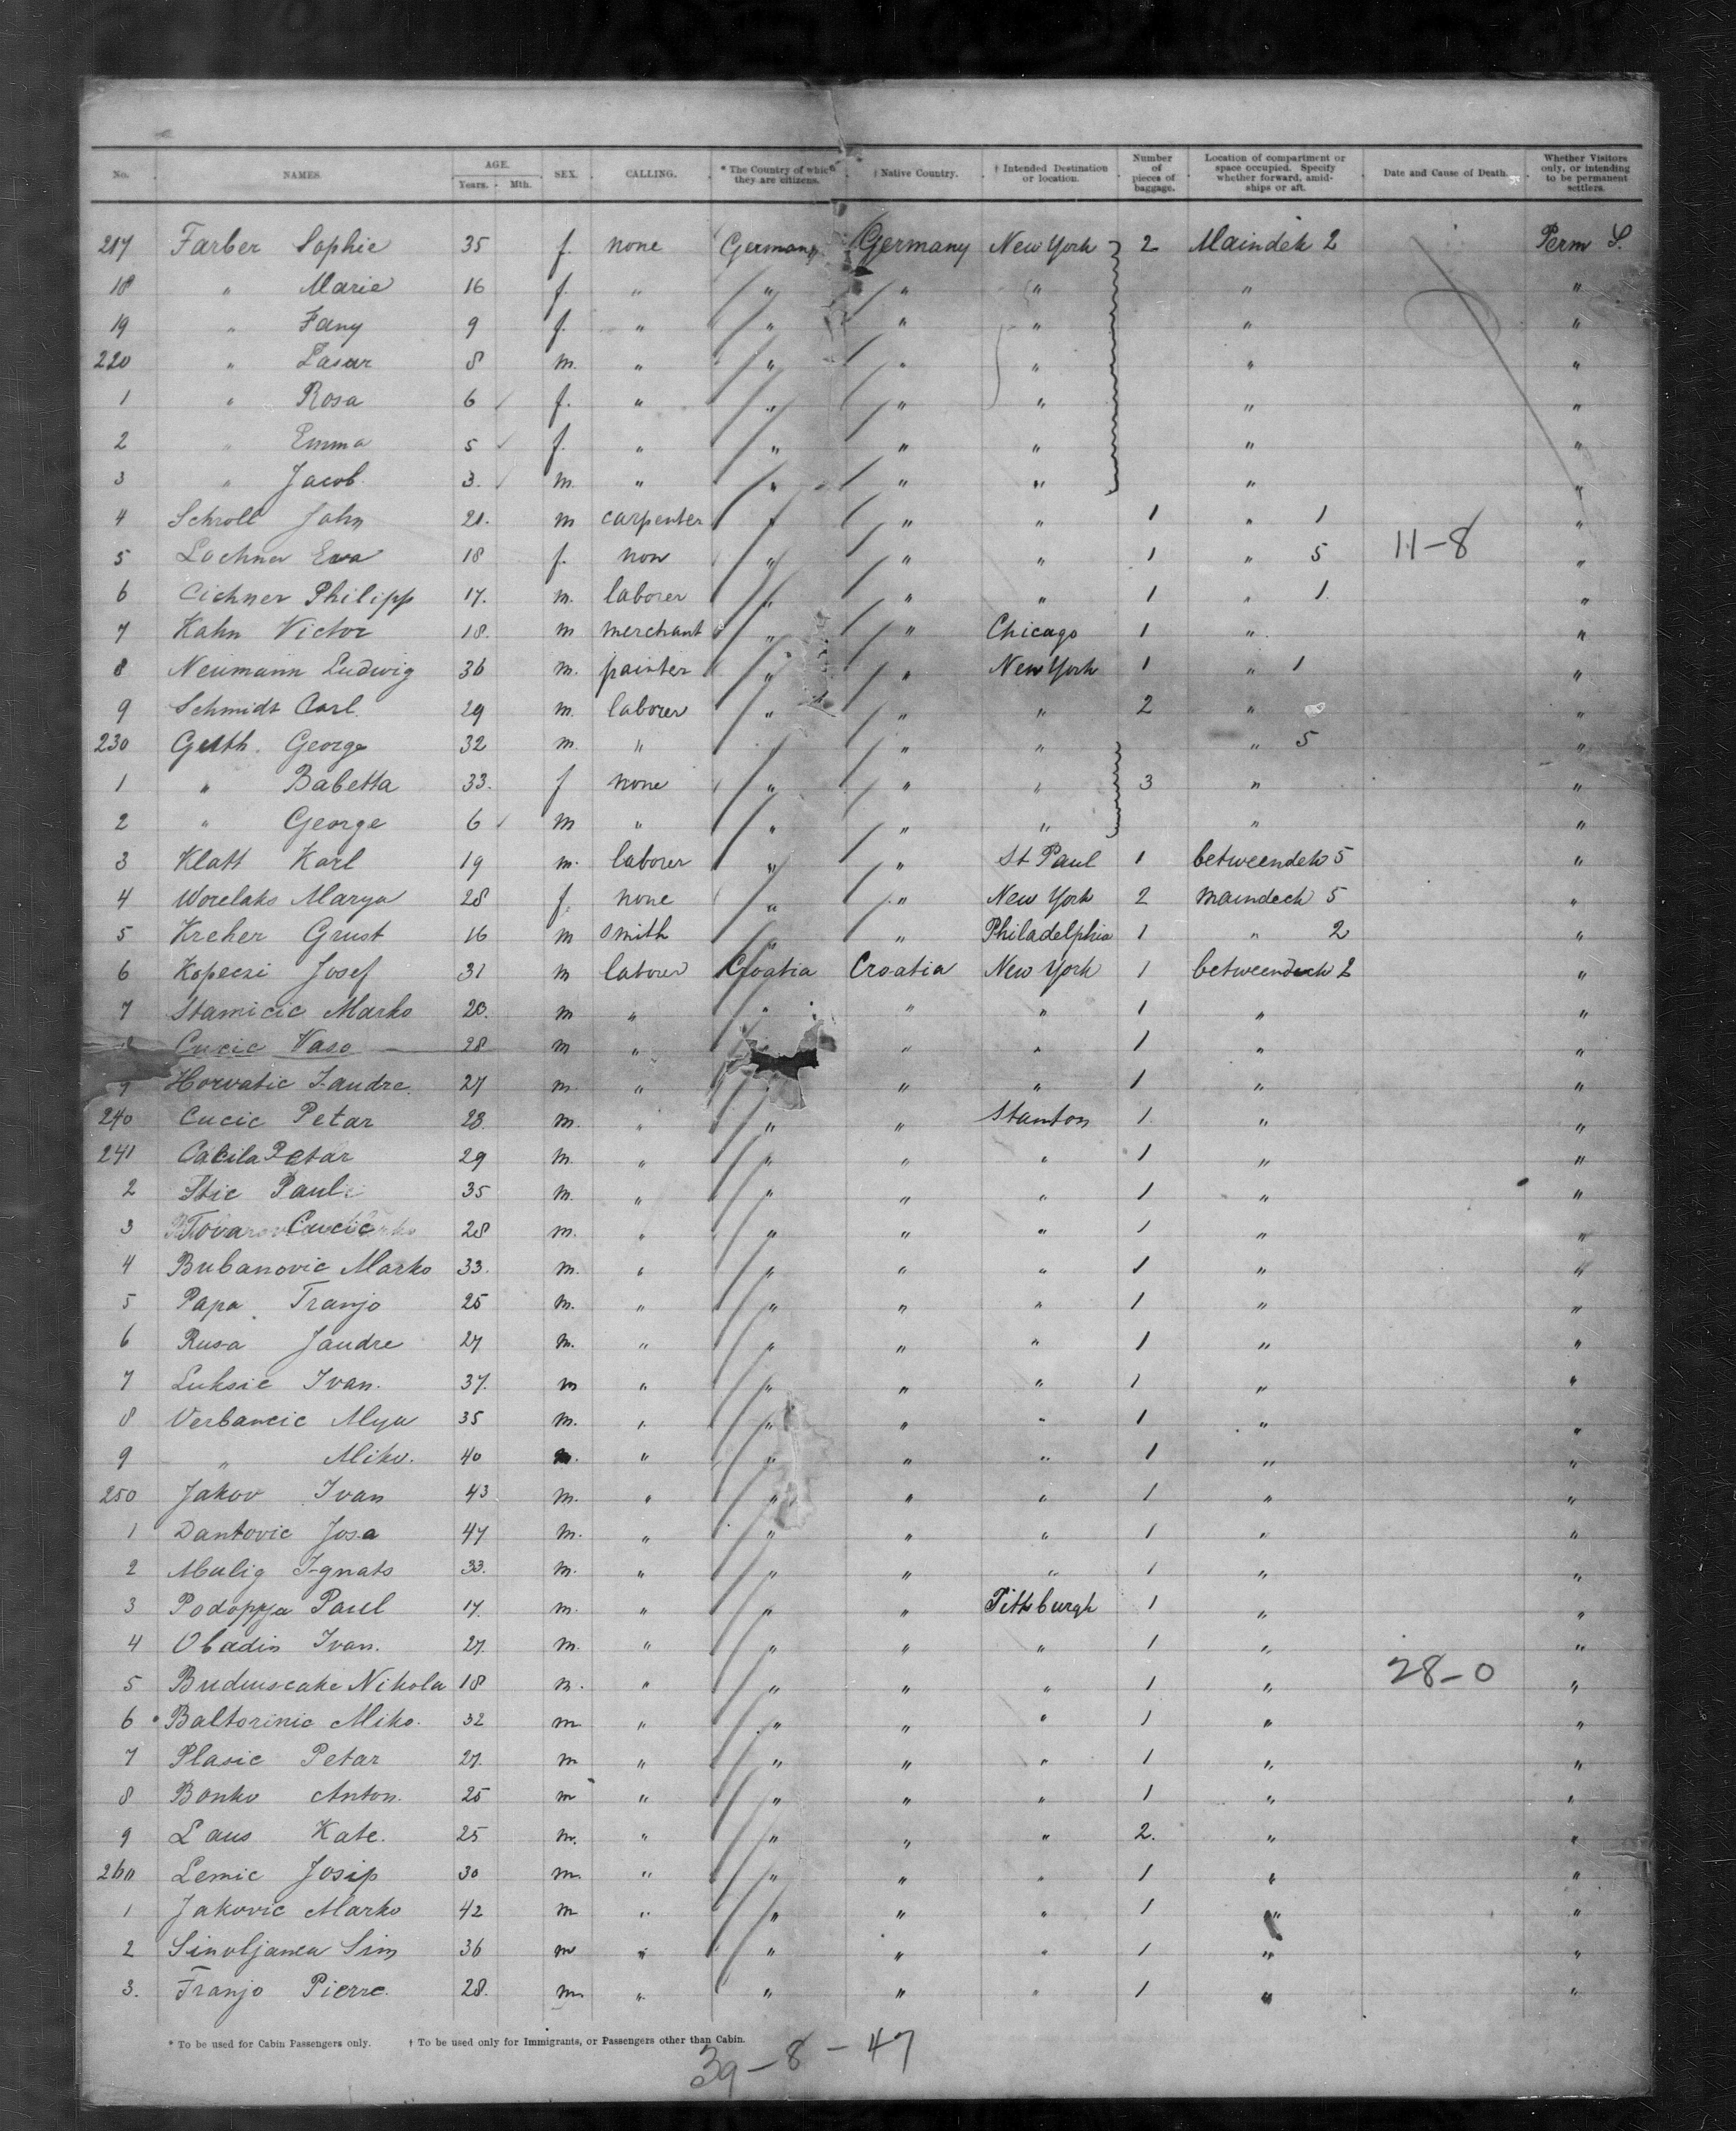 No. NAMES. AGE. Years. Mth. SEX. CALLING. * The Country of which they are citizens. † Native Country. † Intended Destination or location. Number of pieces of baggage. Location of compartment or space occupied. Specify whether forward, amidships or aft. Date and Cause of Death. Whether Visitors only, or intending to be permanent settlers.
217 Farber Sophie 35 f. none Germany Germany New York 2 Maindek 2 Perm S.
18 " Marie 16 f. " " " " " "
19 " Fany 9 f. " " " " " "
220 " Lasar 8 m. " " " " " "
1 " Rosa 6 f. " " " " " "
2 " Emma 5 f. " " " " " "
3 " Jacob 3. m. " " " " " "
4 Schroll John 21. m carpenter " " " 1 " 1 "
5 Lochner Eva 18 f. non " " " 1 " 5 11-8 "
6 Cichner Philipp 17. m. laborer " " " 1 " 1. "
7 Kahn Victor 18. m merchant " " Chicago 1 " "
8 Neumann Ludwig 36 m. painter " " New York 1 " 1 "
9 Schmidt Carl. 29 m. laborer " " " 2 " "
230 Guth. George 32 m. " " " " " 5 "
1 " Babetta 33. f none " " " 3 " "
2 " George 6 m " " " " " "
3 Klatt Karl 19 m. laborer " " St Paul 1 betweendek 5 "
4 Worelaks Marya 28 f. none " " New York 2 maindeck 5 "
5 Kreher Grust 16 m smith " " Philadelphia 1 " 2 "
6 Kopecsi Josef 31 m laborer Croatia Croatia New York 1 betweendeck 2 "
7 Stamicic Marko 20. m " " " " 1 " "
Cucic Vaso 28 m " " " 1 " "
9 Horvatic Jandre. 27 m. " " " " 1 " "
240 Cucic Petar 28. m. " " " Stanton 1. " "
241 Cacila Petar 29 m. " " " " 1 " "
2 Stic Paul 35 m. " " " " 1 " "
3 Cucic 28 m. " " " " 1 " "
4 Bubanovic Marko 33. m. " " " " 1 " "
5 Papa Franjo 25 m. " " " " 1 " "
6 Rusa Jandre 27 m. " " " " 1 " "
7 Luksic Ivan. 37. m " " " " 1 " "
8 Verbancic Mya 35 m. " " " " 1 " "
9 " Miko. 40 m. " " " " 1 " "
250 Jakov Ivan 43 m. " " " " 1 " "
1 Dantovic Josa 47 m. " " " " 1 " "
2 Mulig Ignats 33. m. " " " " 1 " "
3 Podopyja Paul 17. m. " " " Pittsburgh 1 " "
4 Obadin Ivan. 27. m. " " " " 1 " "
5 Nikola 18 m. " " " " 1 " 28-0 "
6 Baltorinic Miko. 32 m " " " " 1 " "
7 Plasic Petar 27. m " " " " 1 " "
8 Bonko Anton. 25 m " " " " 1 " "
9 Laus Kate. 25 m. " " " " 2. " "
260 Lemic Josip 30 m. " " " " 1 " "
1 Jakovic Marko 42 m " " " " 1 " "
2 Sinoljanca Sim 36 m " " " " 1 " "
3. Franjo Pierre. 28. m. " " " " 1 " "
* To be used for Cabin Passengers only. † To be used only for Immigrants, or Passengers other than Cabin.
39-8-47